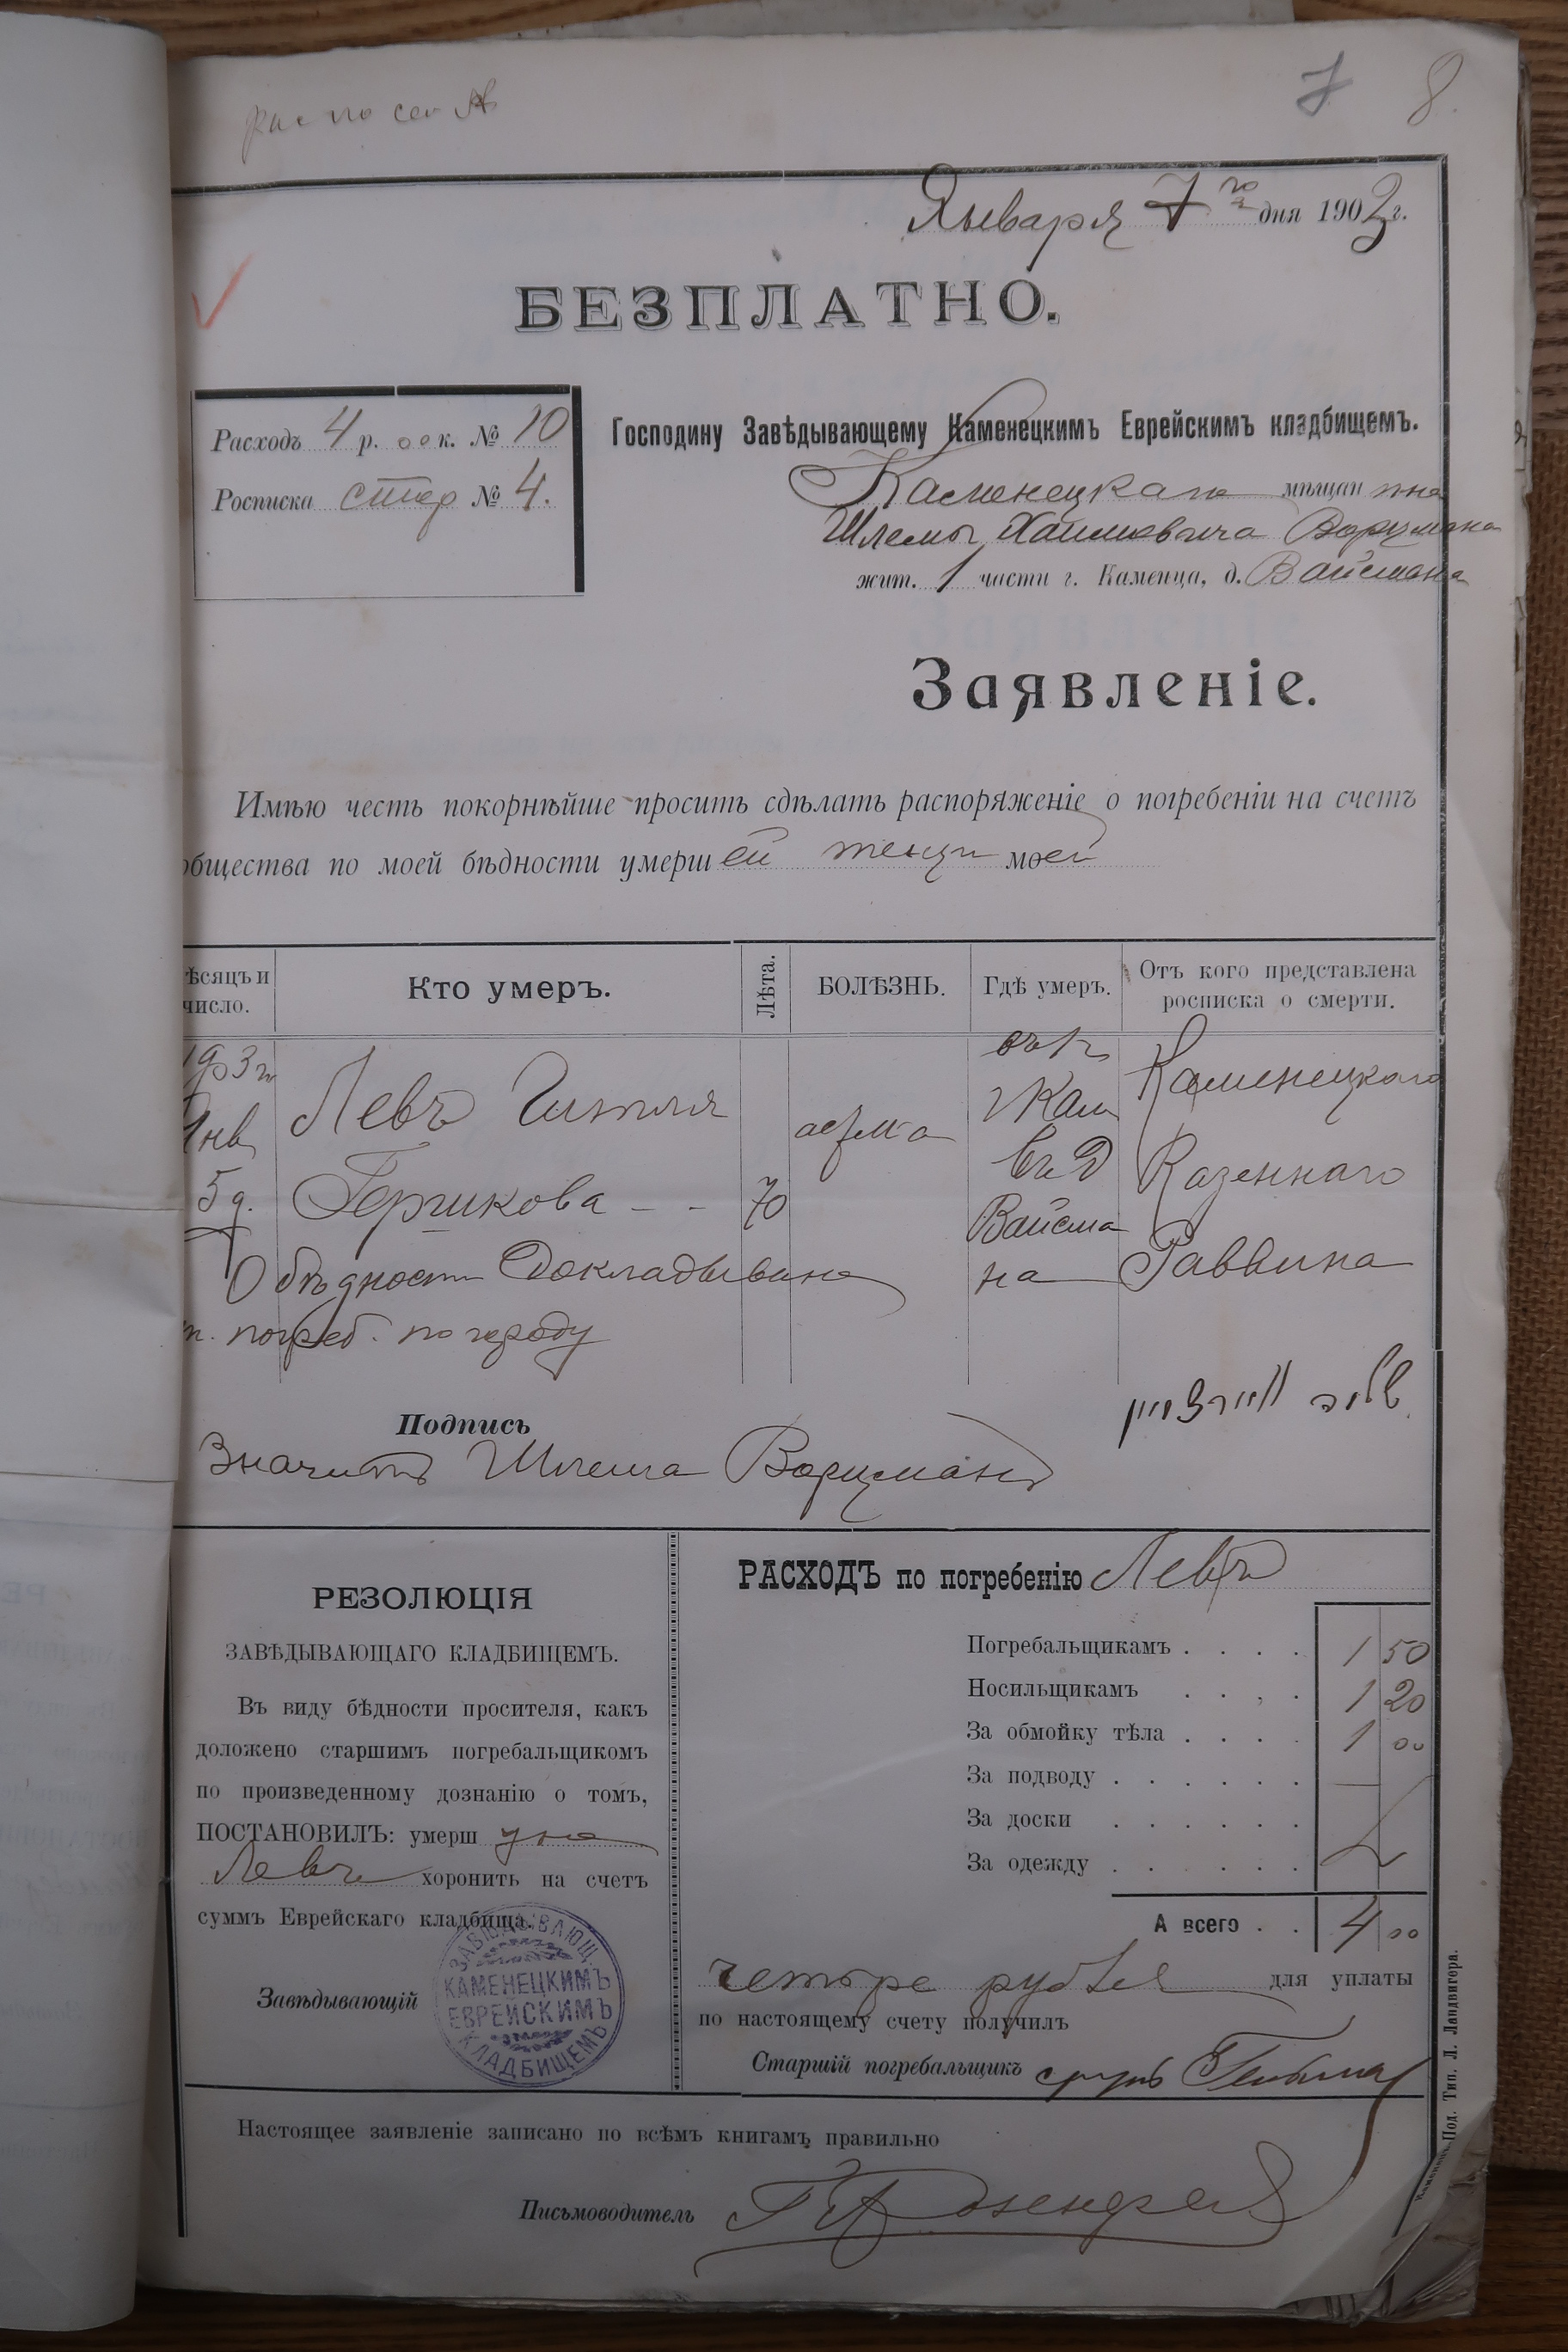 7 8.
Января 7го дня 1903 г.
БЕЗПЛАТНО.
Расходъ 4 р. 00 к. № 10
Росписка стар № 4.
Господину Завѣдывающему Каменецкимъ Еврейскимъ кладбищемъ.
Каменецкаго мѣщанина
Шлемы Хаимовича Ворцмана
жит. 1 части г. Каменца, д. Вайсмана
Заявленіе.
Имѣю честь покорнѣйше просить сдѣлать распоряженіе о погребеніи на счетъ
общества по моей бѣдности умершей тещи моей
ѣсяцъ и число.
Кто умеръ.
Лѣта.
БОЛѢЗНЬ.
Гдѣ умеръ.
Отъ кого представлена росписка о смерти.
1903 г
Янв
5 д.
Левъ Гитля
Гершкова - - 70
астма
въ 1 ч
г Кам
въ д
Вайсма
на
Каменецкаго
Казеннаго
Раввина
О бѣдности Докладывано
погреб. по городу
Подпись
שלמה ווארצמאן
Значитъ Шлема Ворцманъ
РЕЗОЛЮЦІЯ
ЗАВѢДЫВАЮЩАГО КЛАДБИЩЕМЪ.
Въ виду бѣдности просителя, какъ
доложено старшимъ погребальщикомъ
по произведенному дознанію о томъ,
ПОСТАНОВИЛЪ: умерш ую
Левъ хоронить на счетъ
суммъ Еврейскаго кладбища.
Завѣдывающій
ЗАВѢДЫВАЮЩ.
КАМЕНЕЦКИМЪ
ЕВРЕЙСКИМЪ
КЛАДБИЩЕМЪ
РАСХОДЪ по погребенію Левъ
Погребальщикамъ . . . . 1 50
Носильщикамъ . . . . 1 20
За обмойку тѣла . . . . 1 00
За подводу . . . . . .
За доски . . . . . .
За одежду . . . . . .
А всего . . 4 00
четыре рубля для уплаты
по настоящему счету получилъ
Старшій погребальщикъ
Настоящее заявленіе записано по всѣмъ книгамъ правильно
Письмоводитель
Под. Тип. Л. Ландвигера.